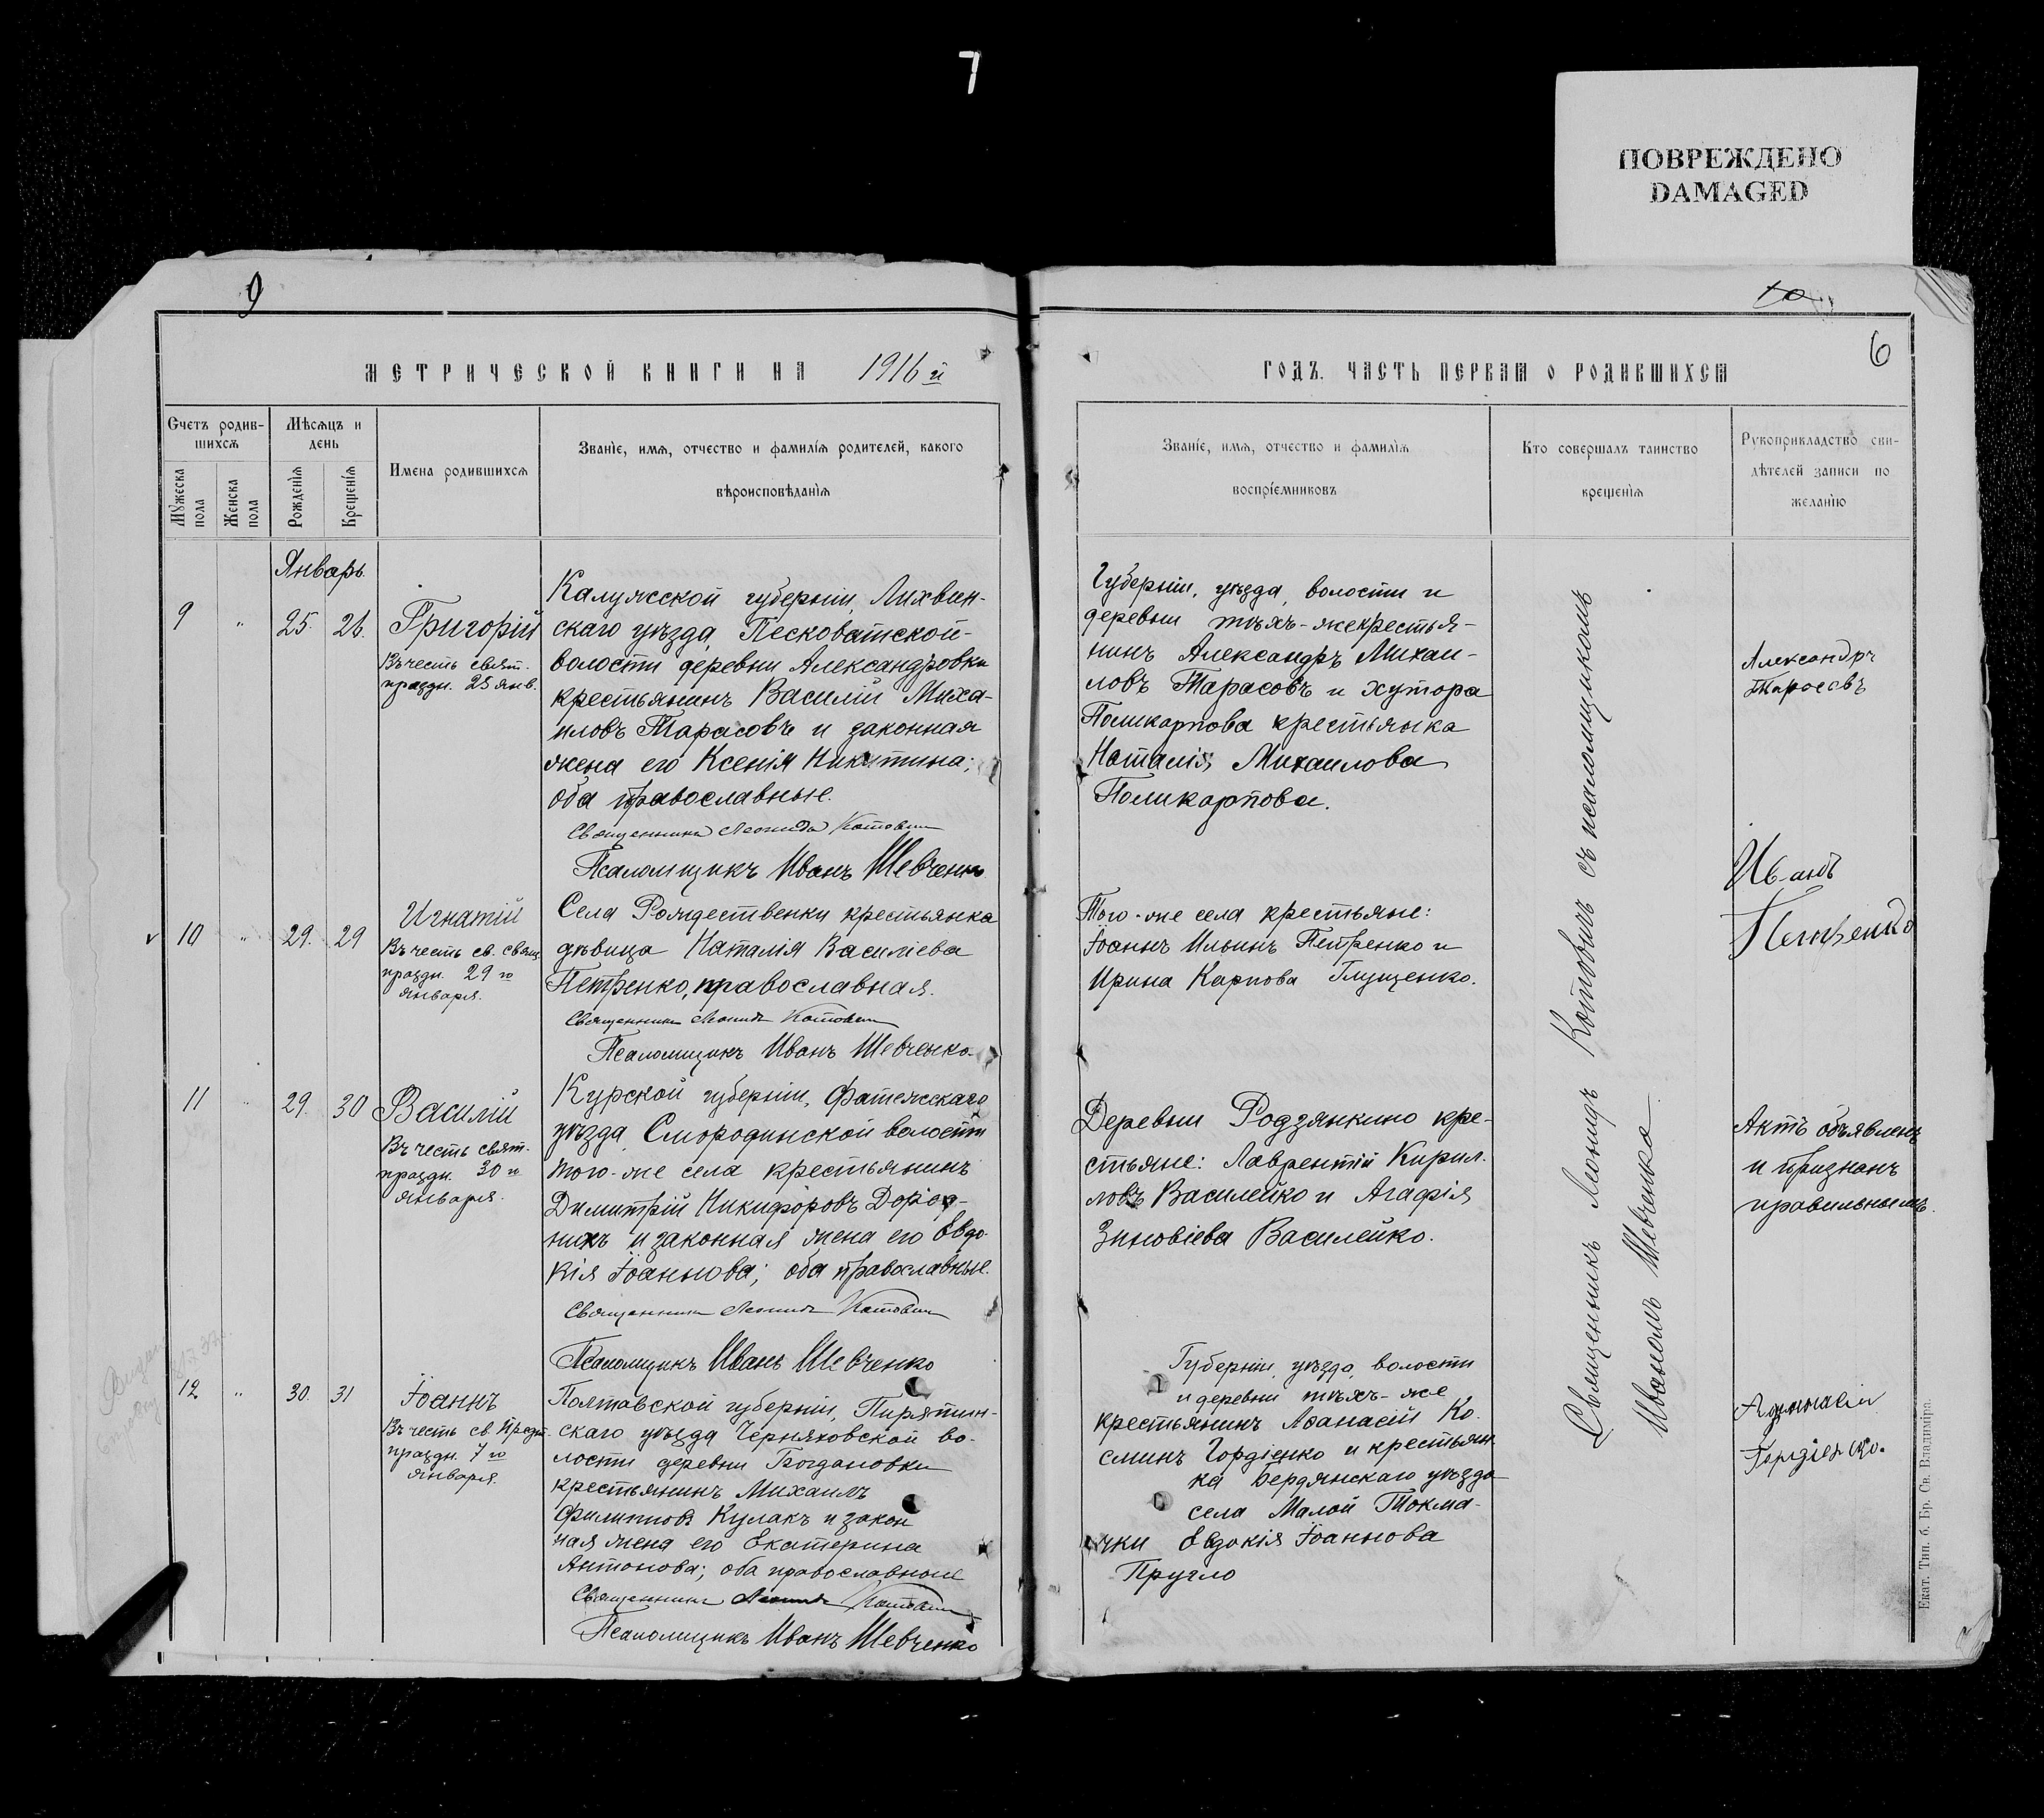 7
ПОВРЕЖДЕНО
DAMAGED
9
МЕТРИЧЕСКОЙ КНИГИ НА 1916 й
Счетъ родив-
шихся
Мѣсяцъ и
день
Мужеска
пола
Женска
пола
Рожденія
Крещенія
Имена родившихся
Званіе, имя, отчество и фамилія родителей, какого
вѣроисповѣданія
Январь.
9 " 25. 26. Григорій
Въ честь свят.
праздн. 25 янв.
Калужской губерніи, Лихвин-
скаго уѣзда, Песковатской-
волости деревни Александровки
крестьянинъ Василій Миха-
иловъ Тарасовъ и законная
жена его Ксенія Никитина;
оба православные.
Священникъ Леонидъ Котович
Псаломщикъ Иванъ Шевченко
10 " 29. 29 Игнатій
Въ честь св. свящ.
праздн. 29 го
января.
Села Рождественки крестьянка
дѣвица Наталія Василіева
Петренко, православная.
Священникъ Леонидъ Котович
Псаломщикъ Иванъ Шевченко.
11 " 29. 30 Василій
Въ честь свят.
праздн. 30 го
января.
Курской губерніи, Фатежскаго
уѣзда Смородинской волости
того-же села крестьянинъ
Димитрій Никифоровъ
и законная жена его Евдо-
кія Іоаннова; оба православные.
Священникъ Леонидъ Котович
Псаломщикъ Иванъ Шевченко
12 " 30. 31 Іоаннъ
Въ честь св. Предт.
праздн. 7 го
января.
Полтавской губерніи, Пирятин-
скаго уѣзда Черняховской во-
лости деревни Богдановки
крестьянинъ Михаилъ
Филипповъ Кулакъ и закон
ная жена его Екатерина
Антонова; оба православные
Священникъ Леонидъ Котович
Псаломщикъ Иванъ Шевченко
10
6
ГОДЪ. ЧАСТЬ ПЕРВАЯ О РОДИВШИХСЯ
Званіе, имя, отчество и фамилія
воспріемниковъ
Кто совершалъ таинство
крещенія
Рукоприкладство сви-
дѣтелей записи по
желанію
Губерніи, уѣзда, волости и
деревни тѣхъ-же крестья-
нинъ Александръ Михаи-
ловъ Тарасовъ и хутора
Поликарпова крестьянка
Наталія Михаилова
Поликарпова.
Того-же села крестьяне:
Іоаннъ Ильинъ Петренко и
Ирина Карпова Глущенко.
Деревни Родзянкино кре-
стьяне: Лаврентій Кирил-
ловъ Василейко и Агафія
Зиновіева Василейко.
Губерніи, уѣзда, волости
и деревни тѣхъ-же
крестьянинъ Аѳанасій Ко-
сминъ Гордіенко и крестьян
ка Бердянскаго уѣзда
села Малой Токма-
чки Евдокія Іоаннова
Пругло
Священникъ Леонидъ Котовичъ съ псаломщикомъ
Иваномъ Шевченко
Александръ
Тарасовъ
Иванъ
Петренко
Актъ объявленъ
и признанъ
правильнымъ.
Гордіенко.
Екат. Тип. б. Бр. Св. Владиміра.